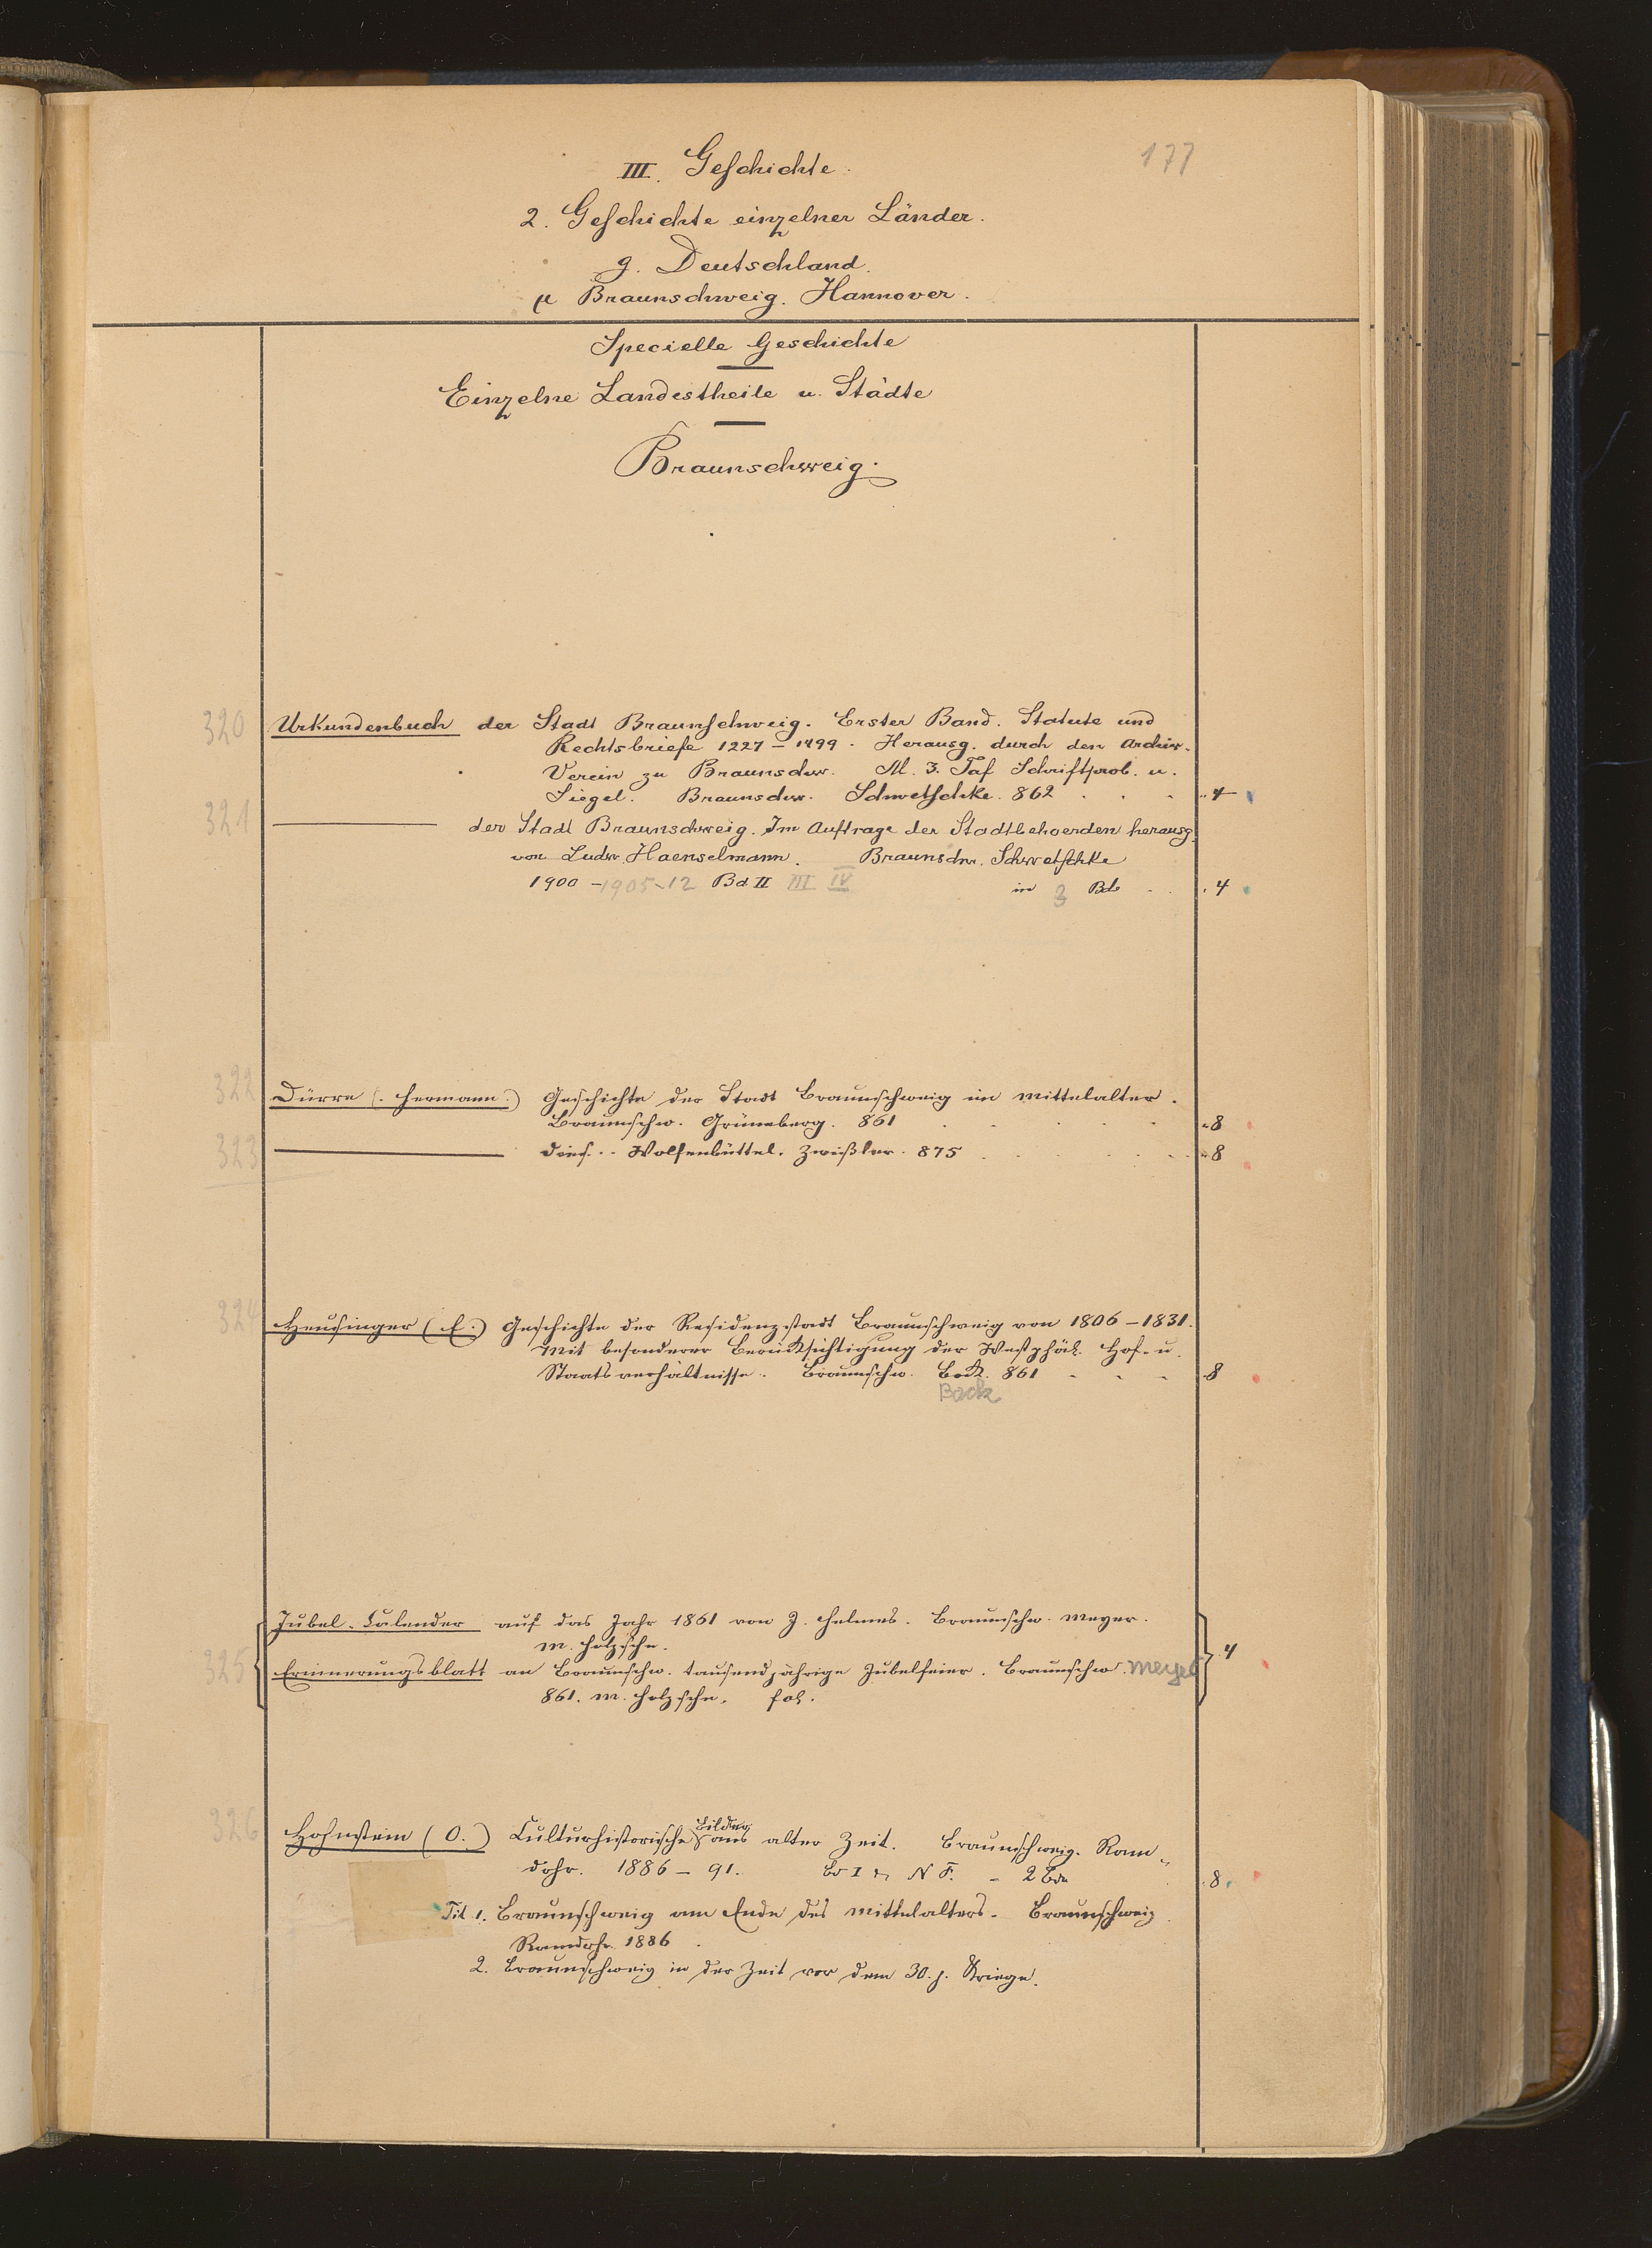 177
III. Geschichte.
2. Geschichte einzelner Länder.
g. Deutschland.
μ Braunschweig. Hannover.
Specielle Geschichte
Einzelne Landestheile u. Städte
Braunschweig.
320 Urkundenbuch der Stadt Braunschweig. Erster Band. Statute und
Rechtsbriefe 1227-1499. Herausg. durch den Archiv-
Verein zu Braunschw. M. 3. Taf Schriftprob. u.
Siegel. Braunschw. Schwetschke. 862 . . . 4
321 ——— der Stadt Braunschweig. Im Auftrage der Stadtbehoerden herausg.
von Ludw. Haenselmann. Braunschw. Schwetschke
1900-1905-12 Bd II III IV in 3 Bdn . . 4
322 Dürre (Hermann.) Geschichte der Stadt Braunschweig im Mittelalter.
Braunschw. Grüneberg. 861 . . . . . 8
323 ——— Dies. - Wolfenbüttel. Zwißler. 875 . . . . . 8
324 Heusinger (E.) Geschichte der Residenzstadt Braunschweig von 1806-1831.
Mit besonderer Berücksichtigung der Westphäl. Hof- u.
Staatsverhältnisse. Braunschw. Bock. 861 . . . 8
Back
Jubel-Calender auf das Jahr 1861 von J. Helmes. Braunschw. Meyer.
m. Holzschn.
325 Erinnerungsblatt an Braunschw. tausendjährige Jubelfeier. Braunschw. Meyer 4
861. m. Holzschn. fol.
326 Hohnstein (O.) Culturhistorische Bilder aus alter Zeit. Braunschweig. Ram-
dohr. 1886-91. Bd I u. N F. - 2 Bde 8
Tit 1. Braunschweig am Ende des Mittelalters. Braunschweig
Ramdohr 1886
2. Braunschweig in der Zeit vor dem 30. j. Kriege.